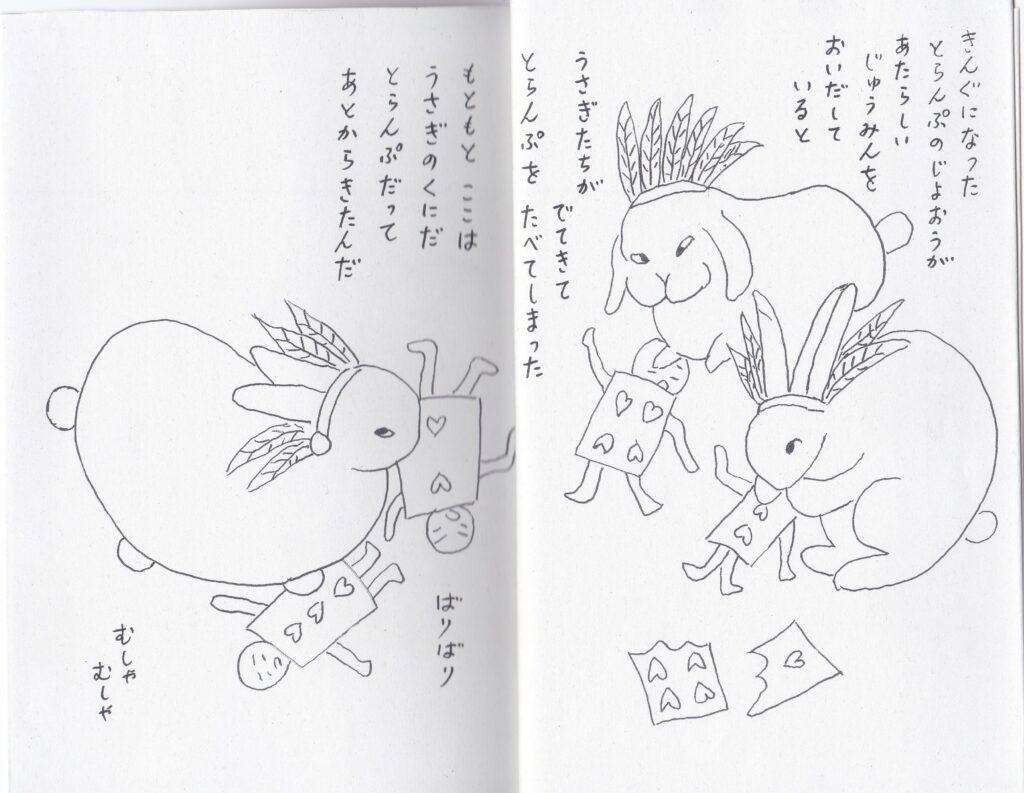 きんぐになった
とらんぷのじょおうが
あたらしい
じゅうみんを
おいだして
いると
うさぎたちが
でてきて
とらんぷを たべてしまった
もともと ここは
うさぎのくにだ
とらんぷだって
あとからきたんだ
ばりばり
むしゃ
むしゃ